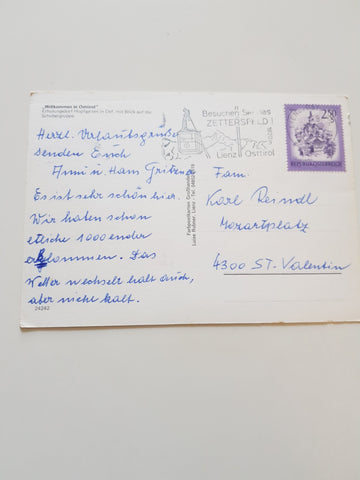 „Willkommen in Osttirol"
Erholungsdorf Hopfgarten in Def. mit Blick auf die
Herzl. Urlaubsgrüße
senden Euch
Anni u. Hans
Es ist sehr schön hier.
Wir haben schon
etliche 1000ender
erklommen. Das
Wetter wechselt halt auch,
aber nicht kalt.
24262
Besuchen Sie das
ZETTERSFELD!
Lienz Osttirol
2.50
REPUBLIK ÖSTERREICH
Fam.
Karl Reindl
Mozartplatz
4300 ST. Valentin